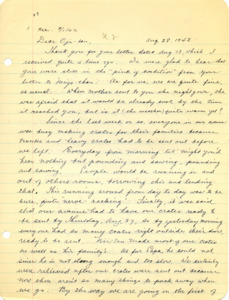 Aug 28, 1942
Dear
Thank you for your letter dated Aug 19, which I
received quite a time ago. We were glad to hear that
you were
letter to As for me, we are quite fine,
as usual. When mother sent to you she
was afraid that it would be already over by the time
it reached you, but is it
Since the last week or so everyone in our
was busy making crates for their families because
trunks and heavy crates had to be sent out before
we left. Everyday from morning till night you'd
hear nothing but pounding and sawing, pounding
and sawing. People would be running in and
out of others rooms, borrowing this and lending
that. The running around from day to day was to be
sure, quite nerve racking. Finally it was said
that our names had to have our crates ready to
be sent by Thursday, Aug 27, so by yesterday morning
everyone had so many crates right outside their doors
ready to be sent. made most of our crates
as well as his family's. As for Papa, he could not
since he is not strong enough and too slow. We certainly
were relieved after our crates were sent out because
now there aren't so many things to pack away when
we go. By the way we are going in the first of